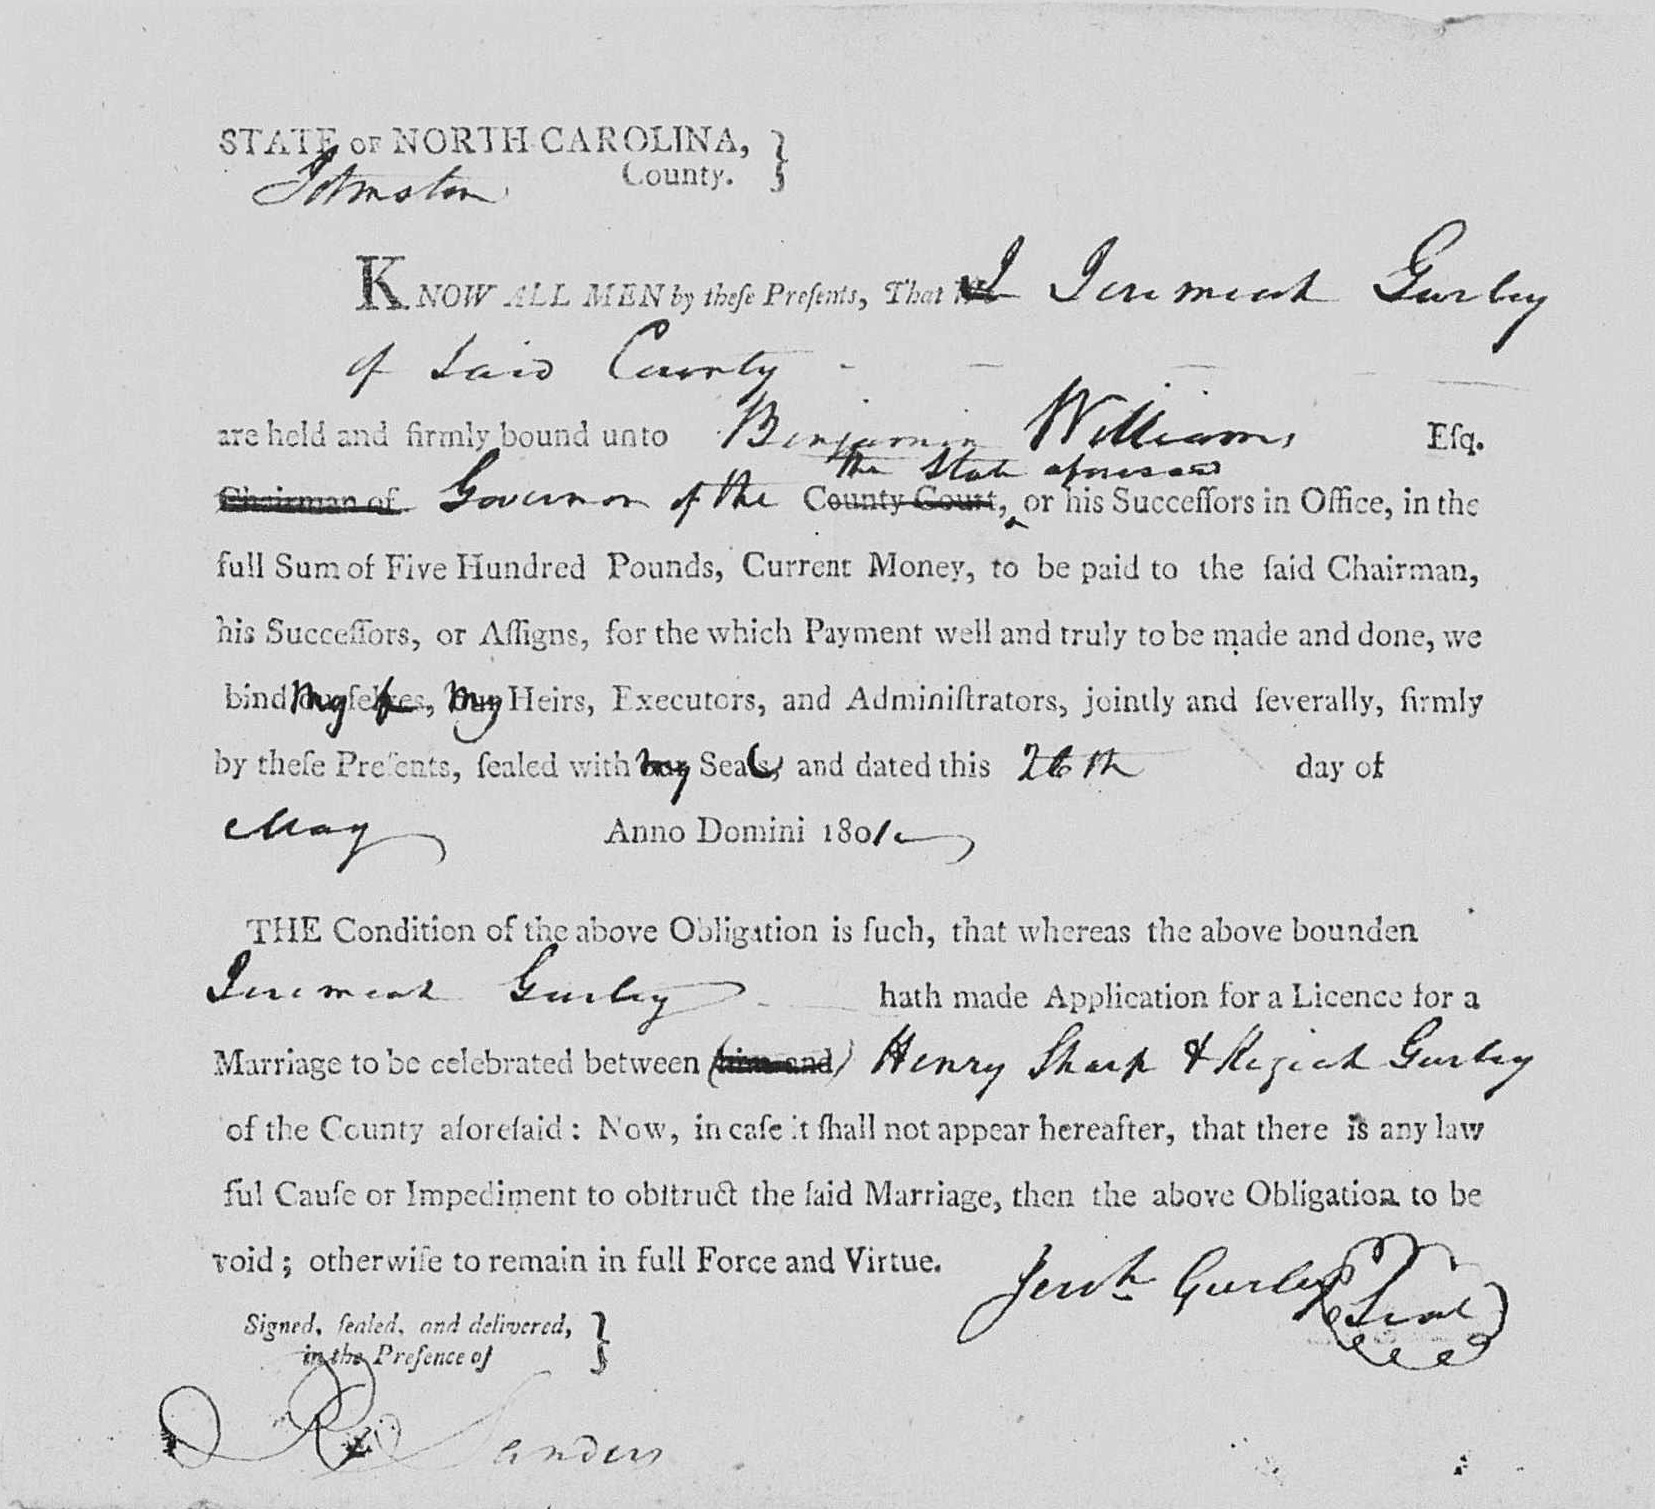 STATE OF NORTH-CAROLINA, }
Johnston County.
KNOW ALL MEN by theſe Preſents, That I Jeremiah Gurley
of Said County - - -
are held and firmly bound unto Benjamin Williams Eſq.
the State aforesaid
Chairman of Governor of the County Court, ‸ or his Succeſſors in Office, in the
full Sum of Five Hundred Pounds, Current Money, to be paid to the ſaid Chairman,
his Succeſſors, or Aſſigns, for the which Payment well and truly to be made and done, we
bind my ſelf, my Heirs, Executors, and Adminiſtrators, jointly and ſeverally, firmly
by theſe Preſents, ſealed with my Seal, and dated this 26th day of
May Anno Domini 1801
THE Condition of the above Obligation is ſuch, that whereas the above bounden
Jeremiah Gurley hath made Application for a Licence for a
Marriage to be celebrated between (him and) Henry Sharp & Kiziah Gurley
of the County aforeſaid: Now, in caſe it ſhall not appear hereafter, that there is any law
ful Cauſe or Impediment to obſtruct the ſaid Marriage, then the above Obligation to be
void; otherwiſe to remain in full Force and Virtue.
Jerᵐʰ Gurley Seal
Signed, ſealed, and delivered, }
in the Preſence of
R Sanders